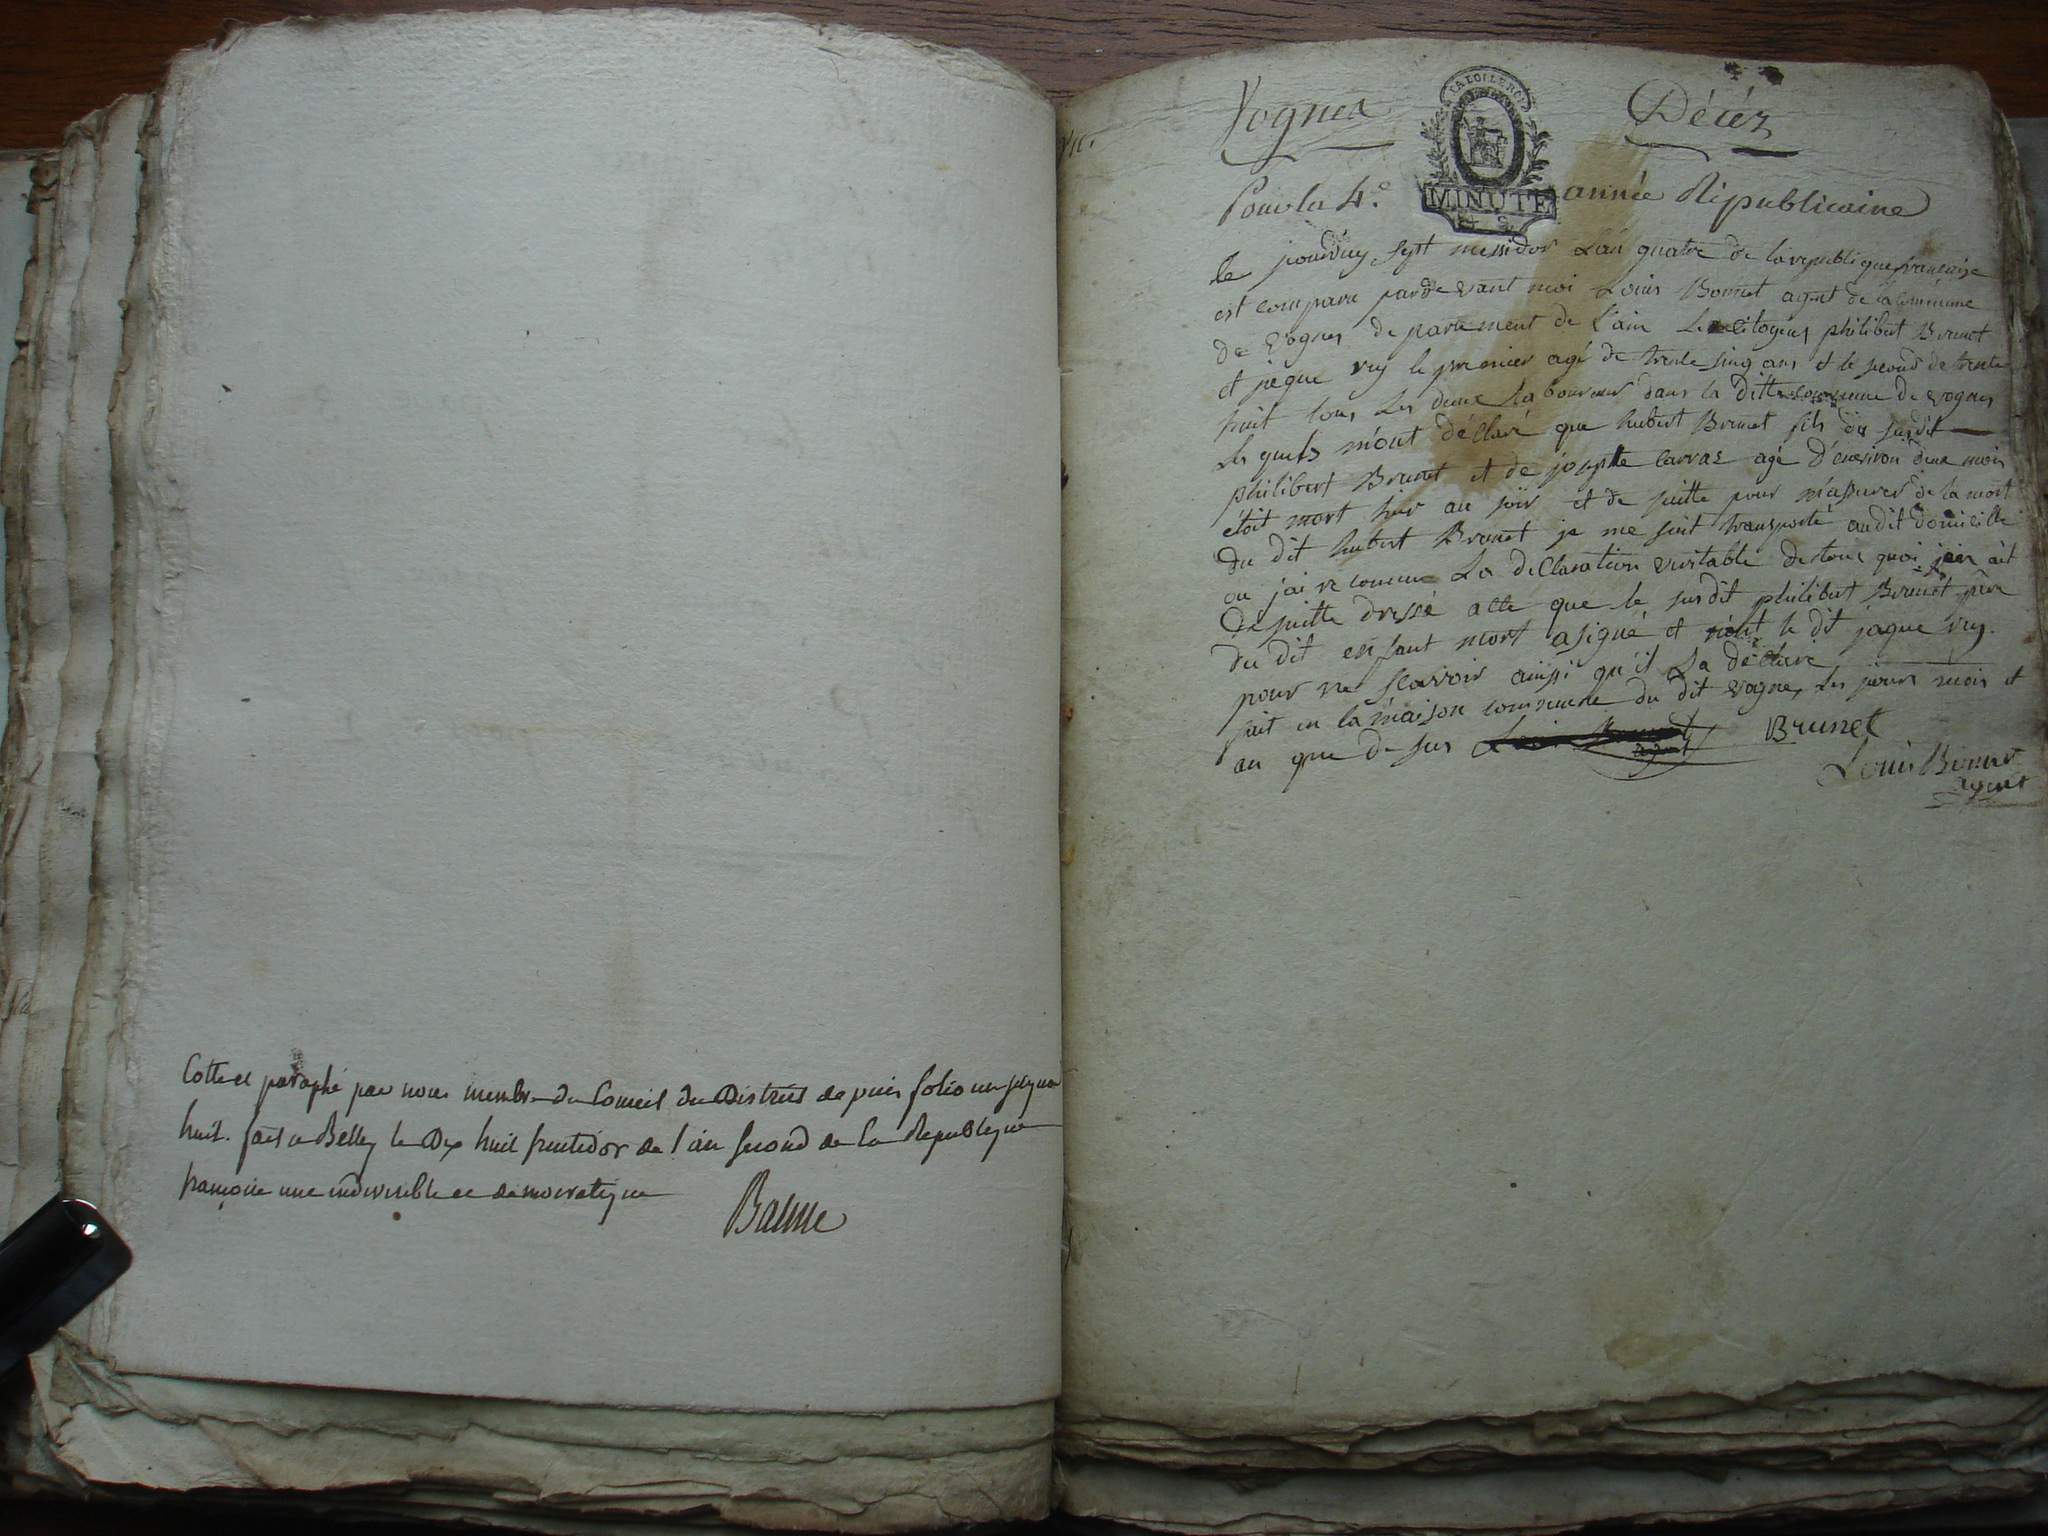 Cotté et paraphé par nous membre du Conseil du District depuis folio un jusqua
huit. fait a Belley le Dix huit fructidor de l'an second de la Republique
françoise une indivisible et democratique
Baume
Vognes
Décéz
LA LOI LE ROI
MINUTE
Pour la 4.e année Républicaine
le jourduy sept messidor L'an quatre de la republique francaise
est comparu pardevant moi Louis Bonnet agent de la commune
de vognes departement de l'ain Les citoyens philibert Brunet
et jaque rey le premier agé de trente sinq ans et le second de trente
huit tous les deux laboureur dans la ditte commune de vognes
Les quels m'ont déclaré que hubert Brunet fils du susdit
philibert Brunet et de josephte carraz agé d'environ deux mois
étoit mort hier au soir et de suitte pour m'assurer de la mort
du dit hubert Brunet je me suit transporté audit domicille
ou jai reconnue La declaration veritable de tous quoi jen ait
de suitte dressé acte que le susdit philibert Brunet père
du dit enfant mort a signé et non le dit jaque rey
pour ne scavoir ainssi qu'il La déclaré
fait en la maison commune du dit vogne, Les jours mois et
an que de sus Brunet
Louis Bonnet
agent